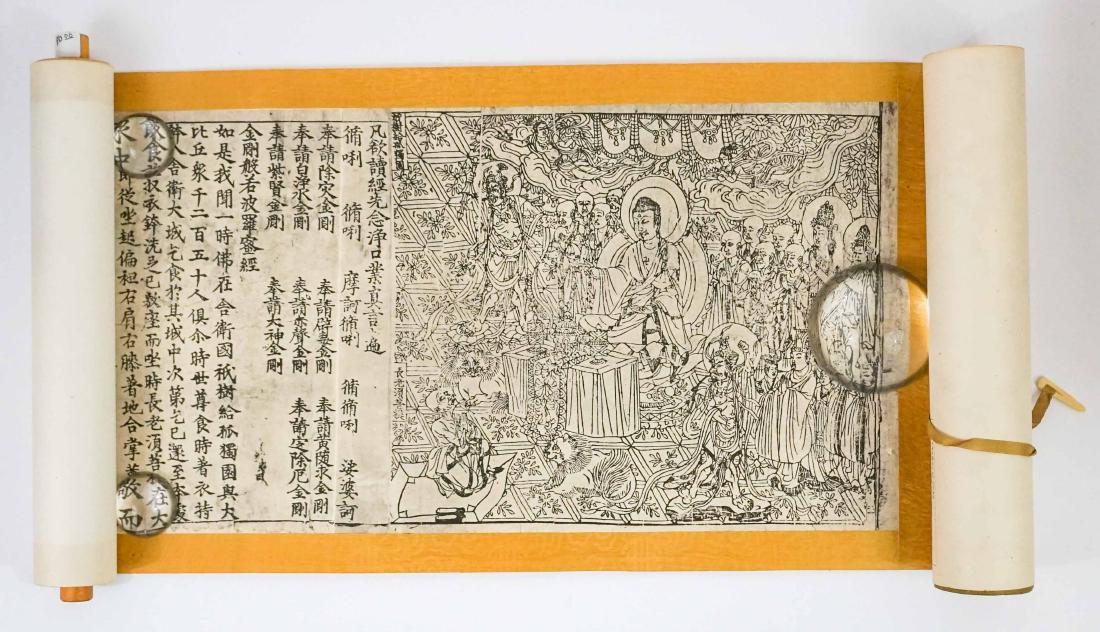 祇樹給孤獨園
長老須菩提
凡欲讀經先念淨口業真言一遍
脩唎 脩唎 摩訶脩唎 脩脩唎 娑婆訶
奉請除灾金剛 奉請辟毒金剛 奉請黃隨求金剛
奉請白淨水金剛 奉請赤聲金剛 奉請定除厄金剛
奉請紫賢金剛 奉請大神金剛
金剛般若波羅蜜經
如是我聞一時佛在舍衛國祇樹給孤獨園與大
比丘衆千二百五十人俱尒時世尊食時著衣持
鉢入舍衛大城乞食於其城中次第乞已還至本處
飯食訖收衣鉢洗足已敷座而坐時長老須菩提在大
衆中即從坐起偏袒右肩右膝著地合掌恭敬而